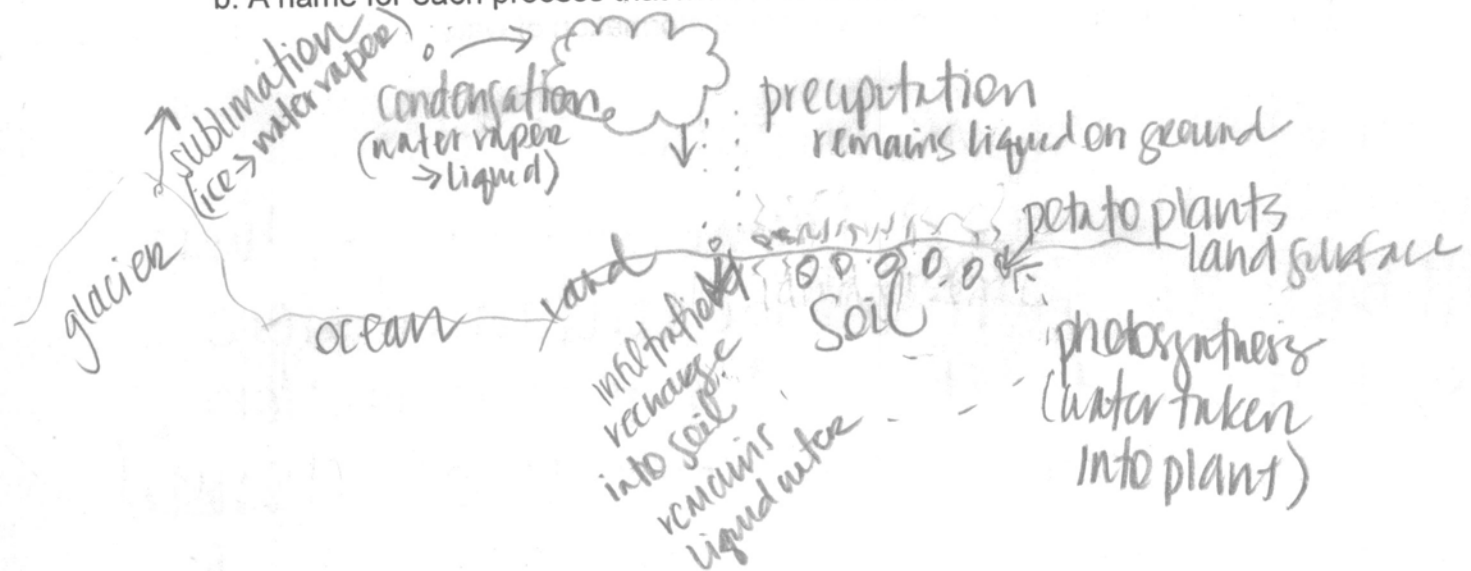 b. A name for each process that
sublimation
(ice→water vaper)
condensation
(water vaper
→liquid)
precipitation
remains liquid on ground
potato plants
land surface
glacier
ocean
land
soil
infiltration
recharge
into soil
remains
liquid water
photosynthesis
(water taken
into plant)